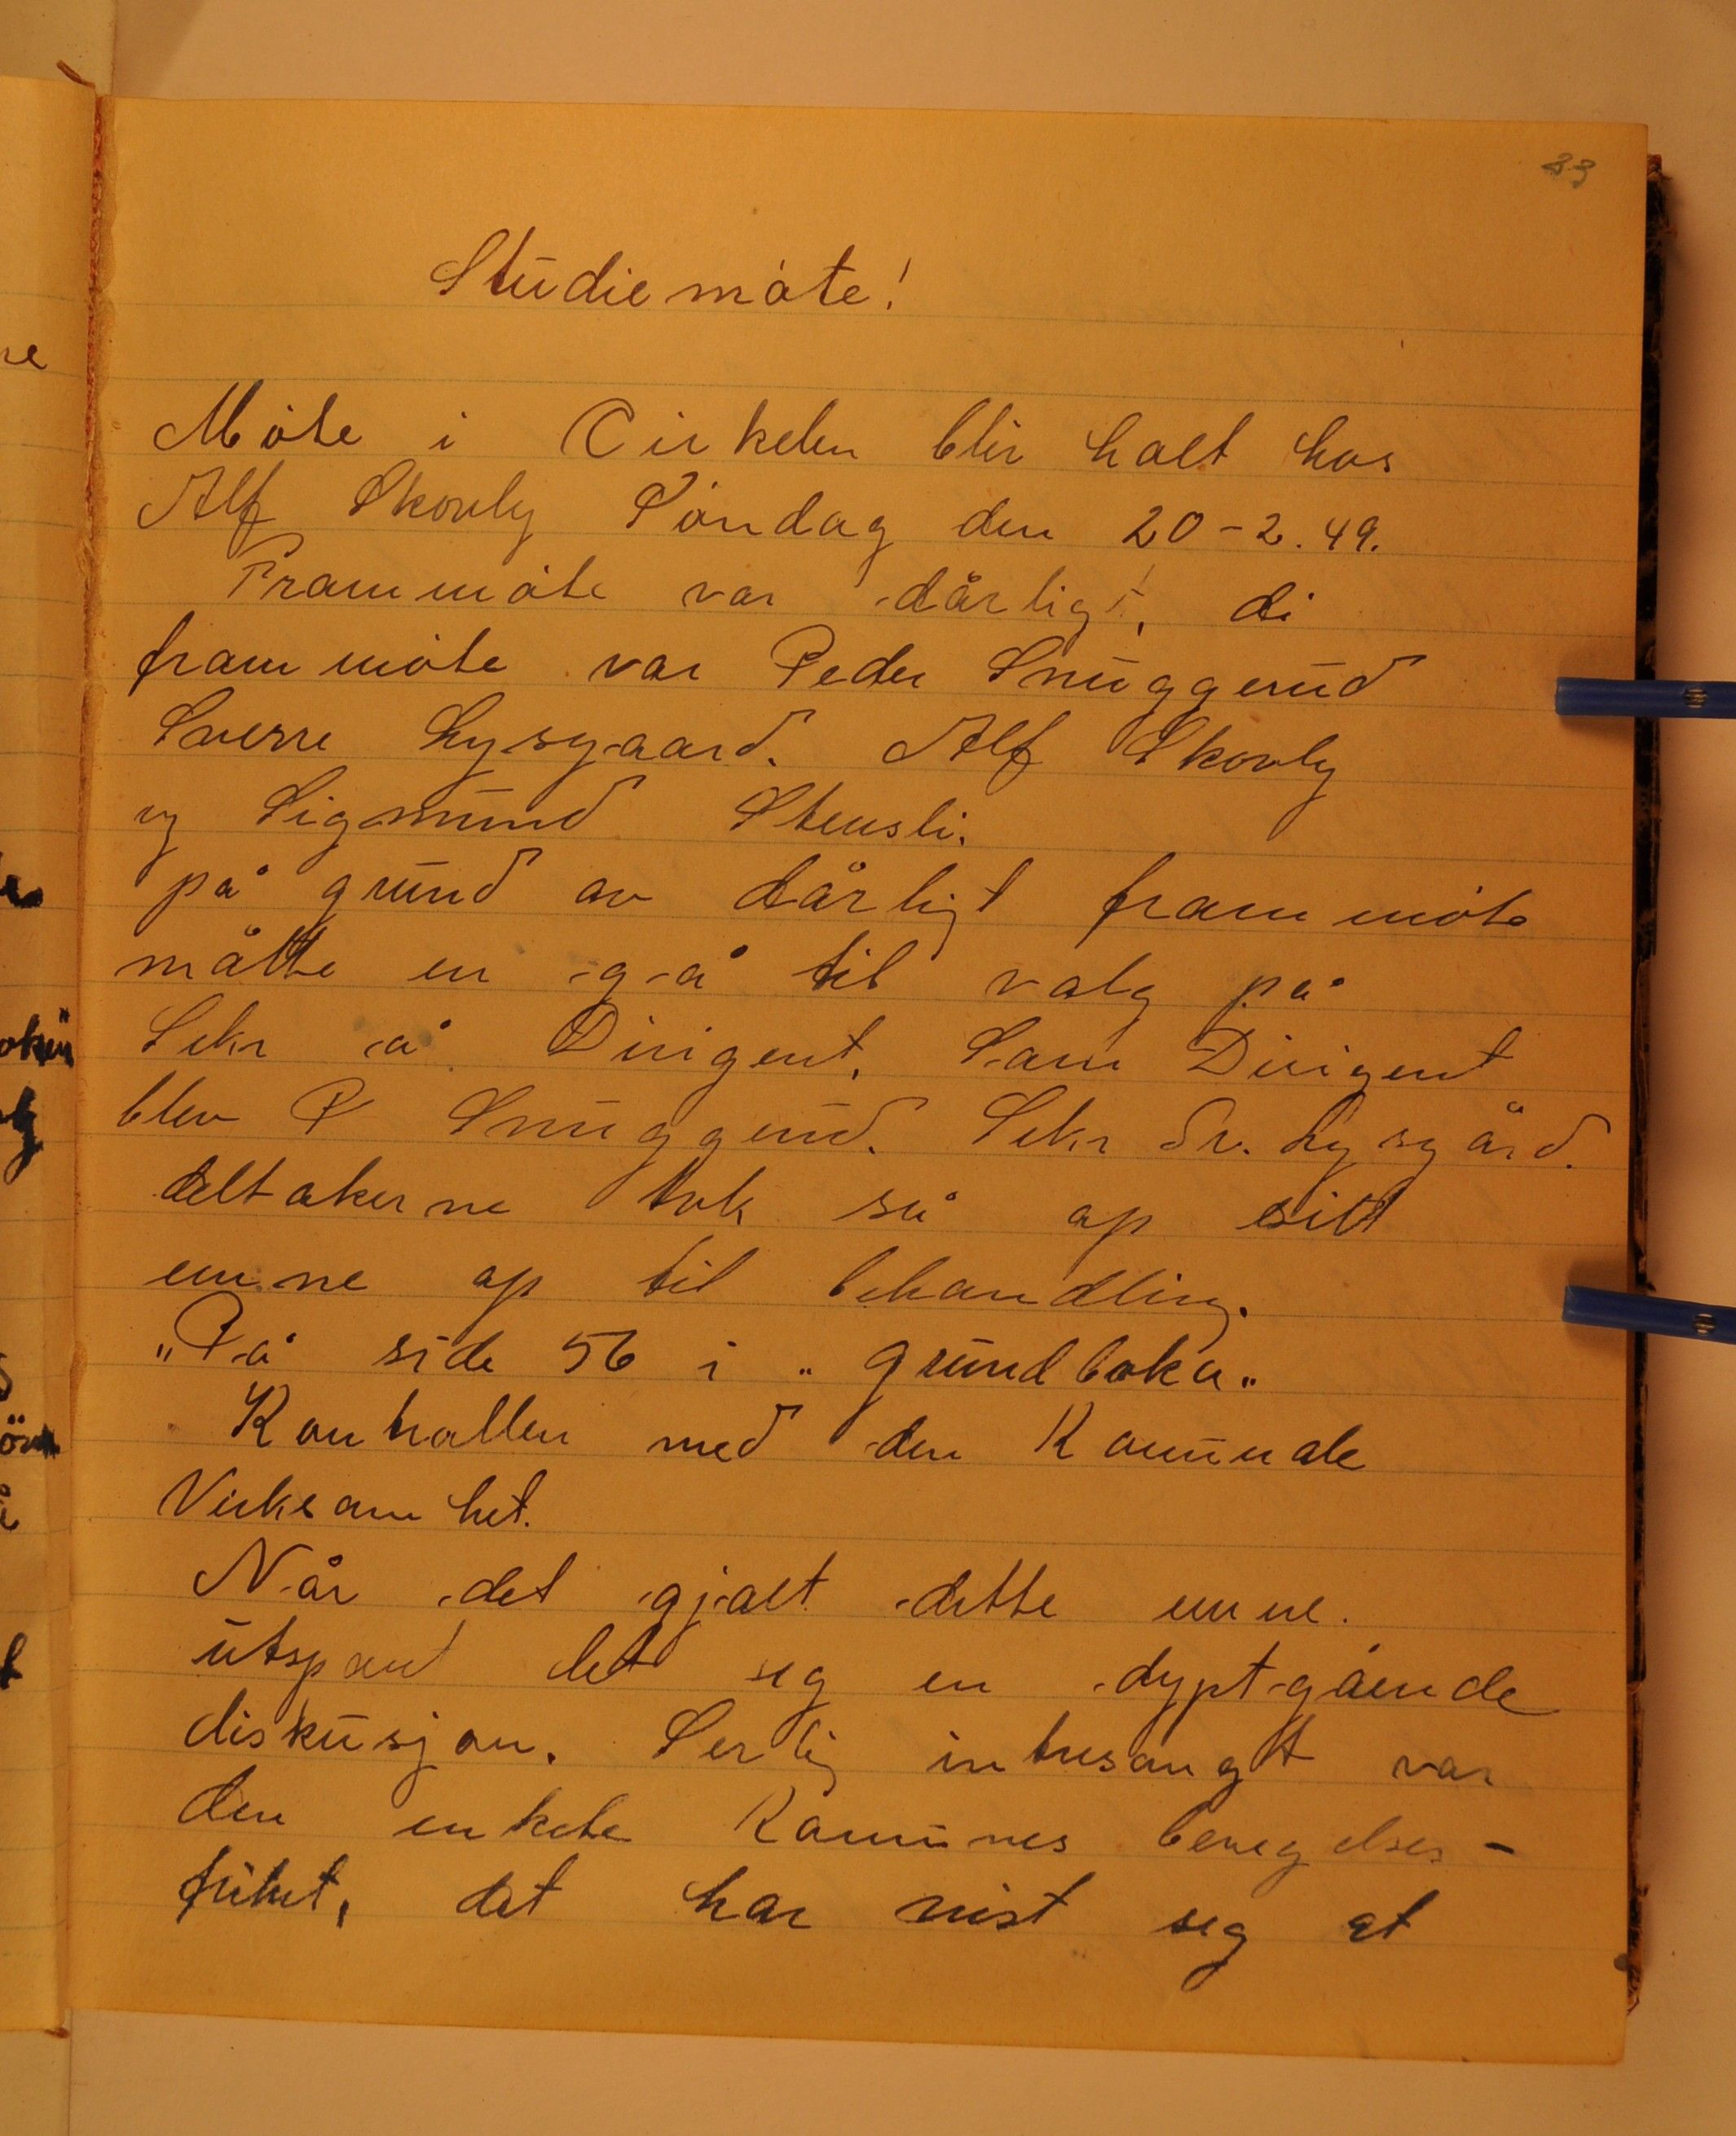 33
Studiemøte!
Møte i Cirkelen blir halt hos
Alf Skovly Søndag den 20-2.49.
Frammøte var dårligt, di
frammøte var Peder Snuggerud
Sverre Lysgaard. Alf Skovly
og Sigmund Stensli.
på grund av dårligt frammøte
måtte en gå til valg på
Sekr å Dirigent. Som Dirigent
blev P Snuggerud. Sekr Sv. Lysgård.
deltakerne tok så op sitt
emne op til behandling.
„På side 56 i „grundboka„
Kontrollen med den Komunale
Virksomhet.
Når det gjalt dette emne.
utspant det seg en dyptgående
diskusjon. Serlig intresangt var
den enkete Komunes bevegelses-
frihet, det har vist seg at